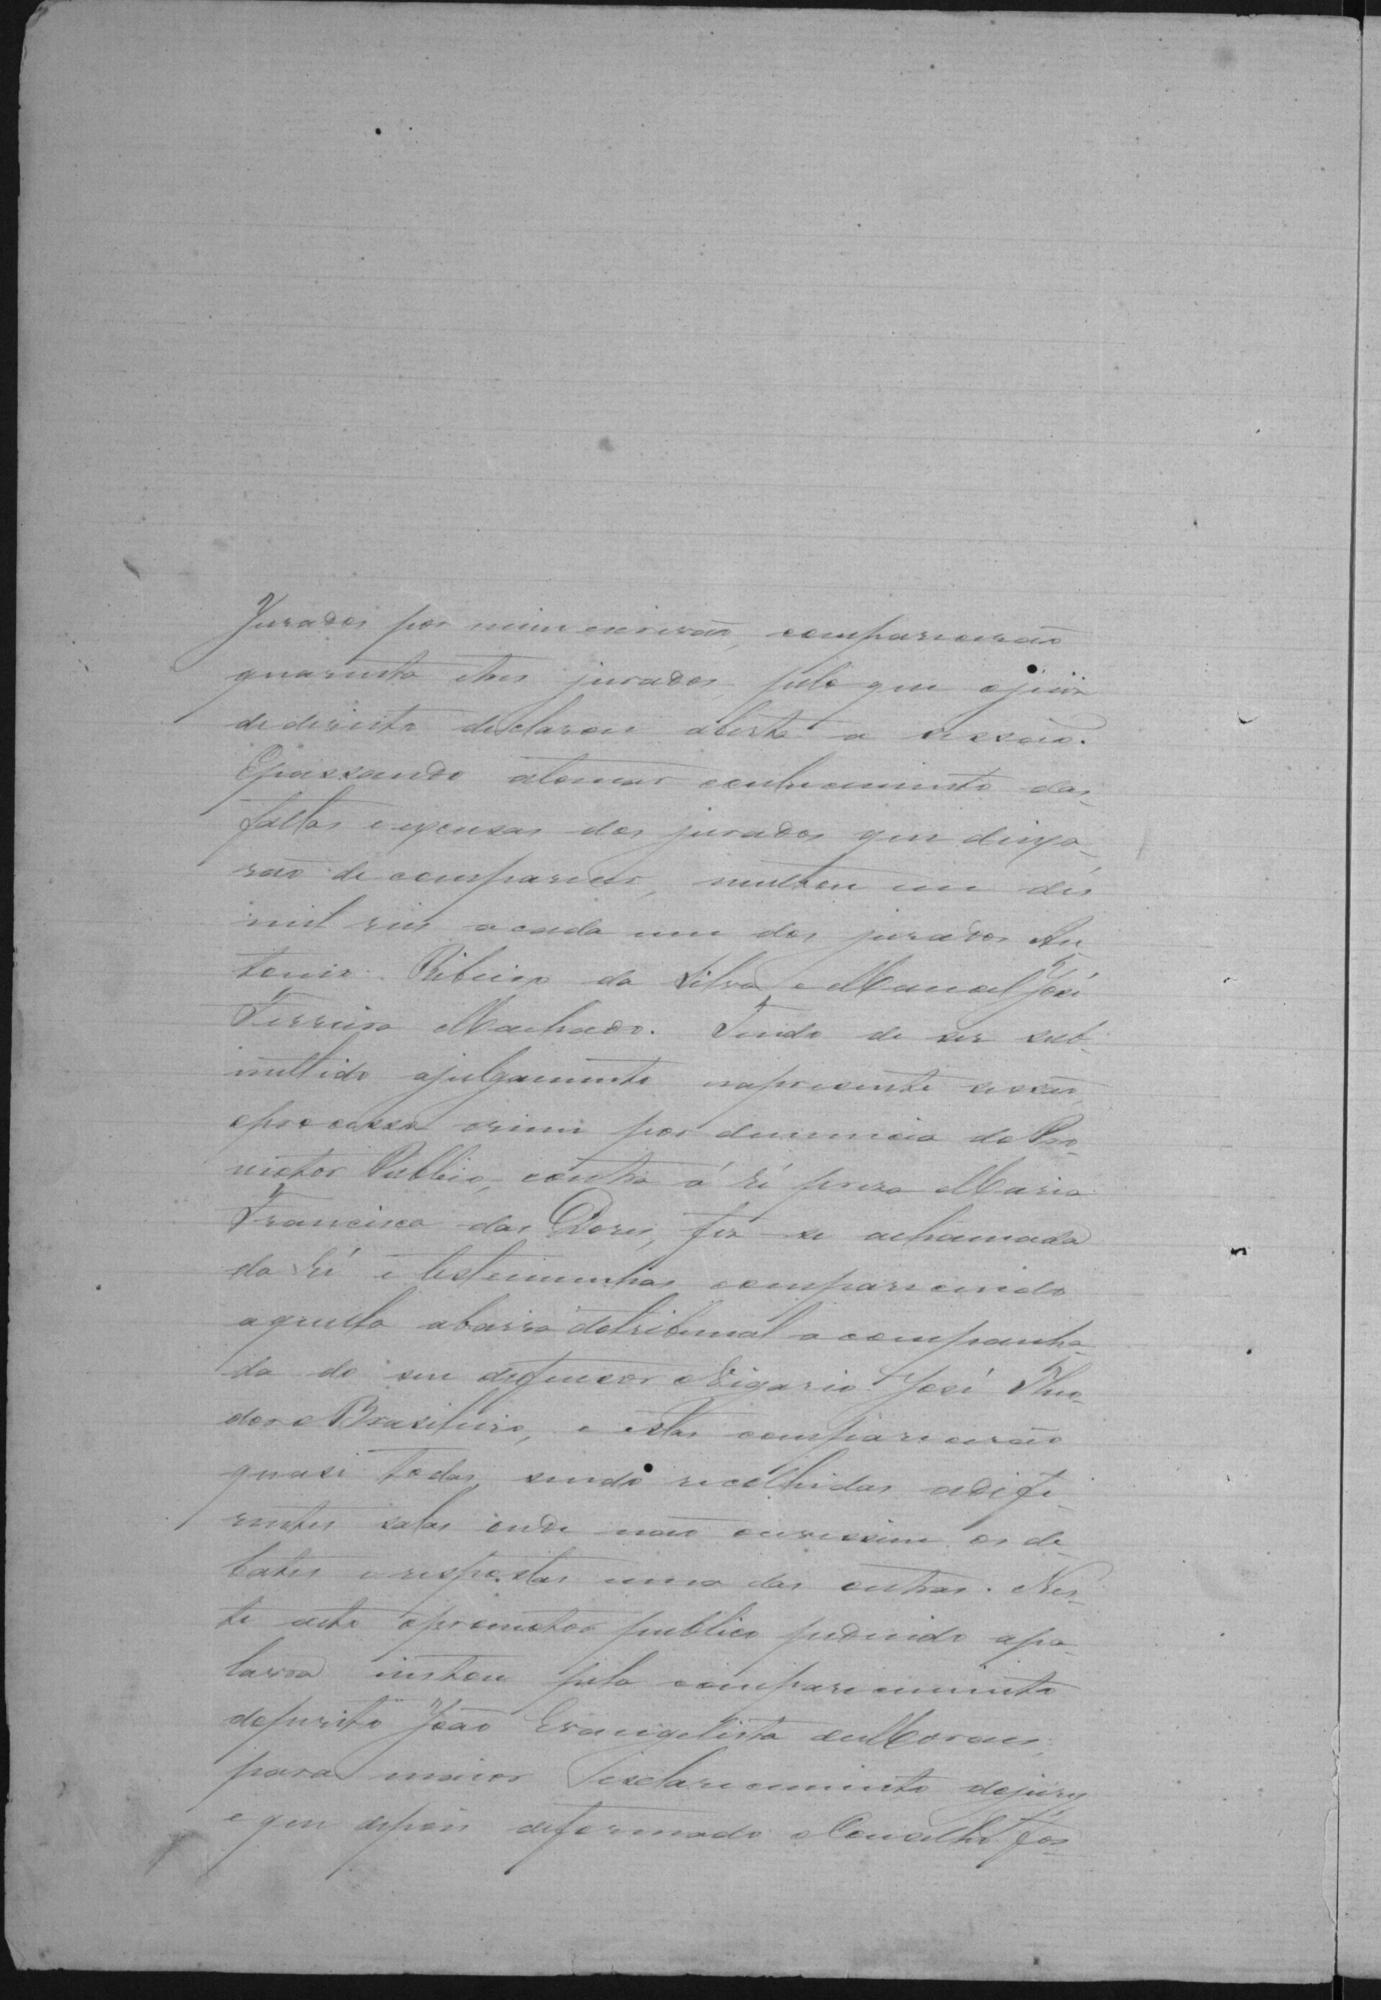 Jurados por mim escrivão, comparecerão
quarenta etres jurados, pelo que ojuiz
dedireito declarou aberta a sessão.
Epassando atomar conhecimento das
faltas eescusas dos jurados que deixa-
rão de comparecer, multou em dés
mil reis acada um dos jurados An
tonio Ribeiro da Silva e Manoel José
Ferreira Machado. Tendo de ser sub-
mettido ajulgamento napresente sessão
oprocesso crime por denuncia do Pro-
motor Publico, contra á ré preza Maria
Francisca das Dores, fez se achamada
da ré e testemunhas comparecendo
aquella abarra dotribunal acompanha-
da do seu defensor Vigario José Theo-
doro Brasileiro, e estas comparecerão
quasi todas, sendo recolhidas adiffe-
rentes salas onde não ouvissem os de-
bates erespostas uma das outras. Nes-
te acto opromotor publico pedindo apa-
lavra instou pelo comparecimento
doperito João Evangelista deMoraes,
para maior esclarecimento dojury
e que depois deformado oConselho fos-